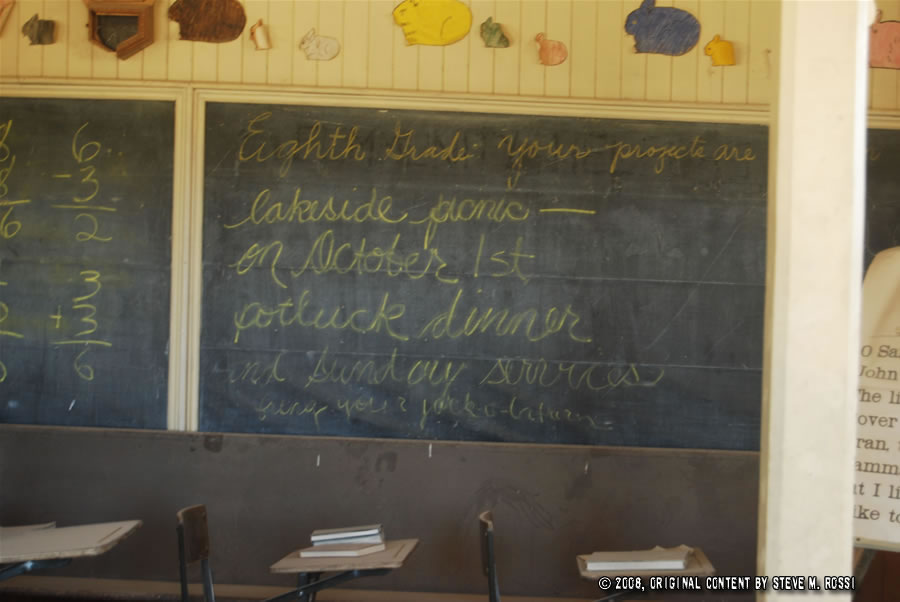 6
-3
2
3
+3
6
Eighth Grade your projects are
lakeside picnic —
on October 1st
potluck dinner
and Sunday services
your
O Sa
John
The li
over
ran,
amm
t I li
ike to
© 2008, ORIGINAL CONTENT BY STEVE M. ROSSI